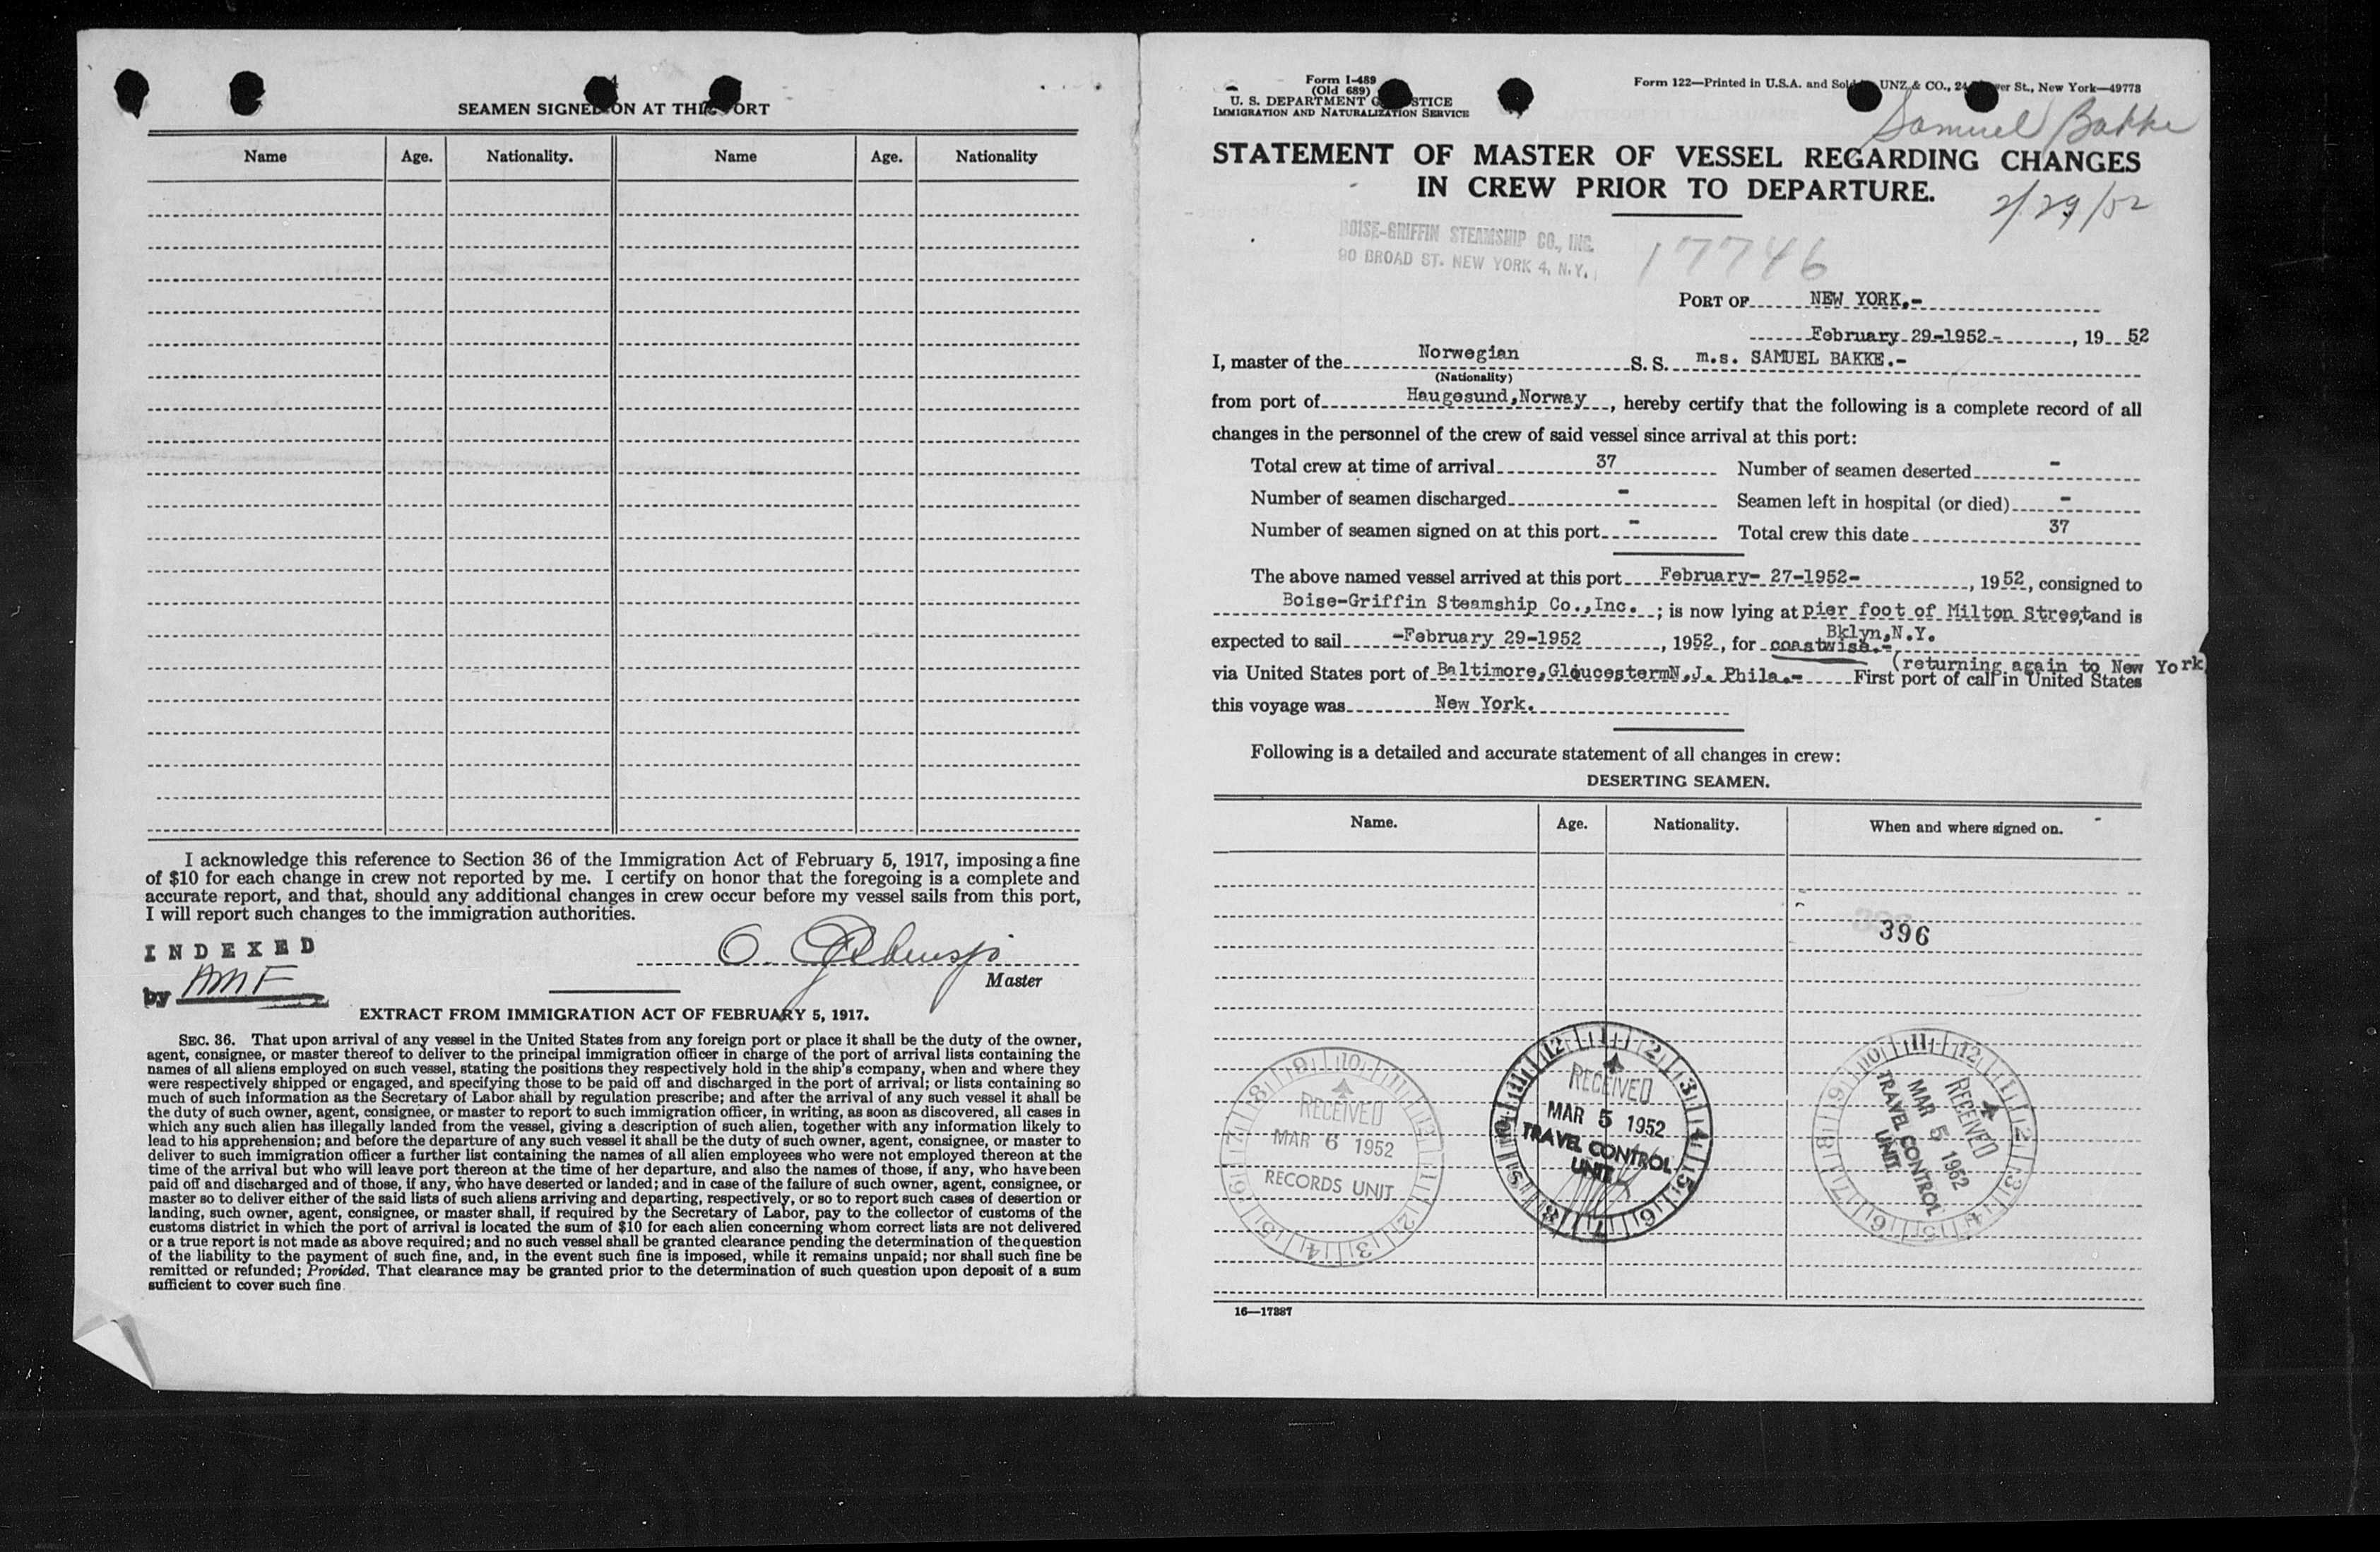 SEAMEN SIGNED ON AT THIS PORT
Name Age. Nationality. Name Age. Nationality
I acknowledge this reference to Section 36 of the Immigration Act of February 5, 1917, imposing a fine
of $10 for each change in crew not reported by me. I certify on honor that the foregoing is a complete and
accurate report, and that, should any additional changes in crew occur before my vessel sails from this port,
I will report such changes to the immigration authorities.
INDEXED
by AMF
O.
Master
EXTRACT FROM IMMIGRATION ACT OF FEBRUARY 5, 1917.
SEC. 36. That upon arrival of any vessel in the United States from any foreign port or place it shall be the duty of the owner,
agent, consignee, or master thereof to deliver to the principal immigration officer in charge of the port of arrival lists containing the
names of all aliens employed on such vessel, stating the positions they respectively hold in the ship's company, when and where they
were respectively shipped or engaged, and specifying those to be paid off and discharged in the port of arrival; or lists containing so
much of such information as the Secretary of Labor shall by regulation prescribe; and after the arrival of any such vessel it shall be
the duty of such owner, agent, consignee, or master to report to such immigration officer, in writing, as soon as discovered, all cases in
which any such alien has illegally landed from the vessel, giving a description of such alien, together with any information likely to
lead to his apprehension; and before the departure of any such vessel it shall be the duty of such owner, agent, consignee, or master to
deliver to such immigration officer a further list containing the names of all alien employees who were not employed thereon at the
time of the arrival but who will leave port thereon at the time of her departure, and also the names of those, if any, who have been
paid off and discharged and of those, if any, who have deserted or landed; and in case of the failure of such owner, agent, consignee, or
master so to deliver either of the said lists of such aliens arriving and departing, respectively, or so to report such cases of desertion or
landing, such owner, agent, consignee, or master shall, if required by the Secretary of Labor, pay to the collector of customs of the
customs district in which the port of arrival is located the sum of $10 for each alien concerning whom correct lists are not delivered
or a true report is not made as above required; and no such vessel shall be granted clearance pending the determination of the question
of the liability to the payment of such fine, and, in the event such fine is imposed, while it remains unpaid; nor shall such fine be
remitted or refunded; Provided, That clearance may be granted prior to the determination of such question upon deposit of a sum
sufficient to cover such fine
Form I-489
(Old 689)
U. S. DEPARTMENT OF JUSTICE
IMMIGRATION AND NATURALIZATION SERVICE
Form 122—Printed in U.S.A. and Sold UNZ & CO., 24 St., New York—49773
Samuel Bakke
STATEMENT OF MASTER OF VESSEL REGARDING CHANGES
IN CREW PRIOR TO DEPARTURE.
2/29/52
BOISE-GRIFFIN STEAMSHIP CO., INC.
90 BROAD ST. NEW YORK 4, N.Y.
17746
PORT OF NEW YORK.-
February 29-1952-, 19 52
I, master of the Norwegian S. S. m.s. SAMUEL BAKKE.-
(Nationality)
from port of Haugesund,Norway, hereby certify that the following is a complete record of all
changes in the personnel of the crew of said vessel since arrival at this port:
Total crew at time of arrival 37 Number of seamen deserted -
Number of seamen discharged - Seamen left in hospital (or died) -
Number of seamen signed on at this port - Total crew this date 37
The above named vessel arrived at this port February- 27-1952-, 1952, consigned to
Boise-Griffin Steamship Co.,Inc. ; is now lying at pier foot of Milton Street, and is
Bklyn,N.Y.
expected to sail -February 29-1952, 1952, for coastwise.-
(returning again to New York
via United States port of Baltimore,GloucestermN.J. Phila.- First port of call in United States
this voyage was New York.
Following is a detailed and accurate statement of all changes in crew:
DESERTING SEAMEN.
Name. Age. Nationality. When and where signed on.
396
RECEIVED
MAR 6 1952
RECORDS UNIT
RECEIVED
MAR 5 1952
TRAVEL CONTROL
UNIT
RECEIVED
MAR 5 1952
TRAVEL CONTROL
UNIT
16—17287